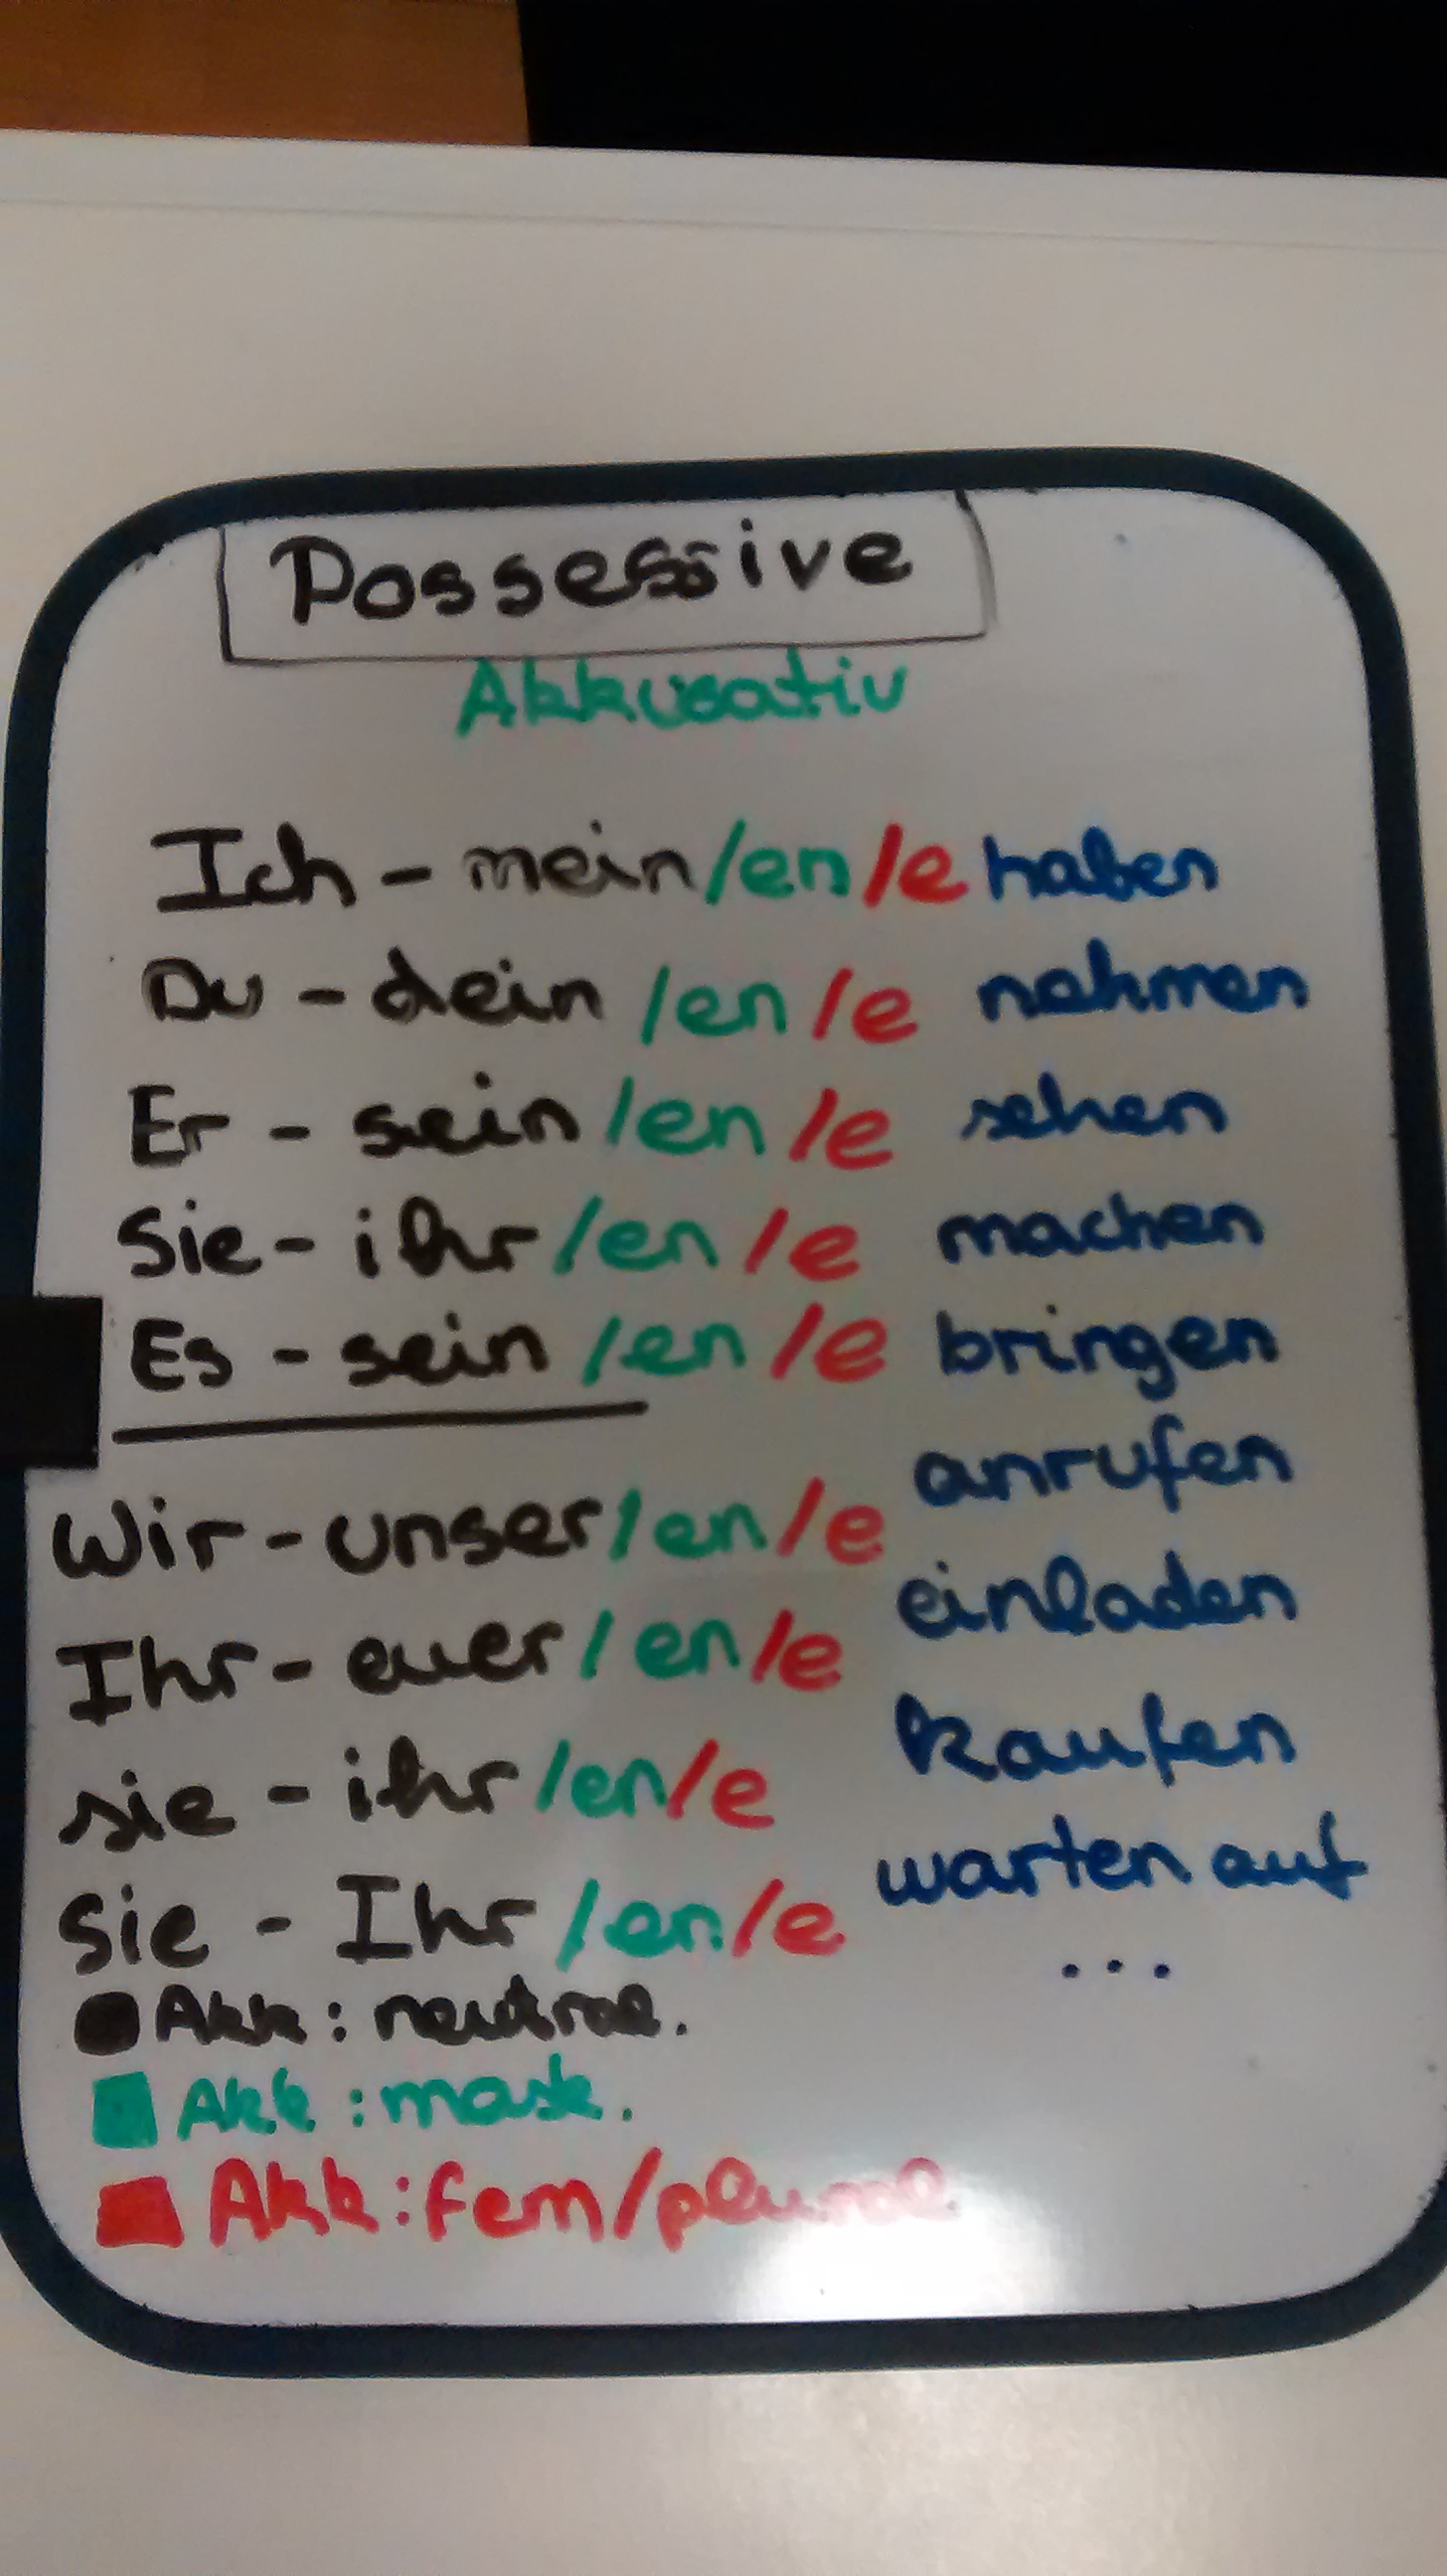 Possessive
Akkusativ
Ich - mein/en/e haben
Du - dein /en/e nehmen
Er - sein/en/e sehen
Sie - ihr/en/e machen
Es - sein/en/e bringen
anrufen
Wir - unser/en/e
einladen
Ihr - euer/en/e
kaufen
sie - ihr/en/e
warten auf
Sie - Ihr/en/e
...
Akk: neutral.
Akk: mask.
Akk: fem/plural